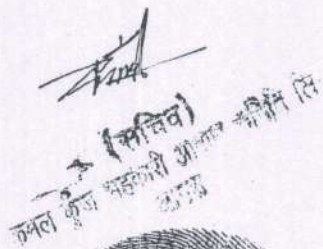 (सचिव)
कमल कुंज सहकारी आवास समिति लि
आगरा